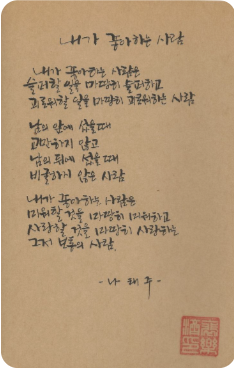 내가 좋아하는 사람
내가 좋아하는 사람은
슬퍼할 일을 마땅히 슬퍼하고
괴로워할 일을 마땅히 괴로워하는 사람
남의 앞에 섰을 때
교만하지 않고
남의 뒤에 섰을 때
비굴하지 않은 사람
내가 좋아하는 사람은
미워할 것을 마땅히 미워하고
사랑할 것을 마땅히 사랑하는
그저 보통의 사람.
- 나 태 주 -